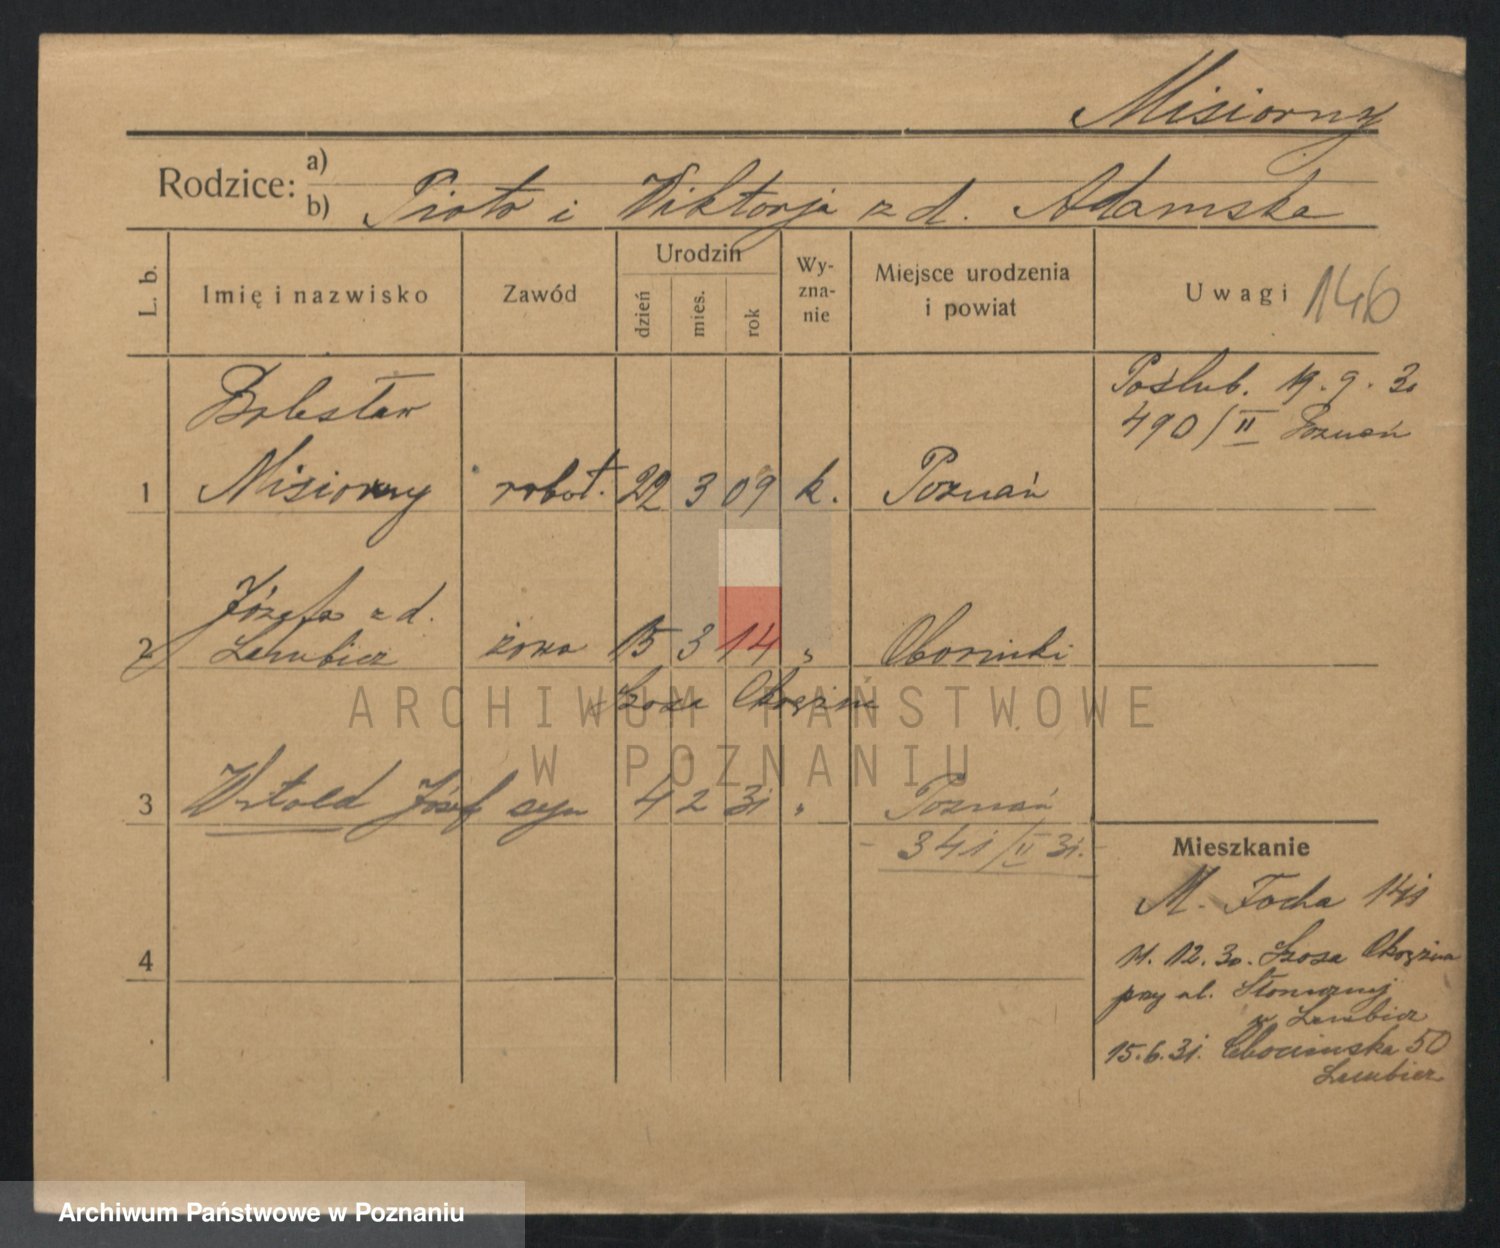 Misiorny
Rodzice: a)
b) Piotr i Wiktorja z d. Adamska
L. b. Imię i nazwisko Zawód Urodzin dzień mies. rok Wyznanie Miejsce urodzenia i powiat Uwagi 146
Poślub. 19. 9. 30
490/II Poznań
Bolesław
1 Misiorny robot. 22 3 09 k. Poznań
Józefa z d.
2 żona 15 3 14 "
Szosa Okrężna
3 Witold Józef syn 4 2 31 " Poznań
- 341/II 31. -
Mieszkanie
M. Focha
4
11. 12. 30. Szosa Okrężna
przy ul. Słonecznej
u
15. 6. 31. Chocimska 50
ARCHIWUM PAŃSTWOWE
W POZNANIU
Archiwum Państwowe w Poznaniu